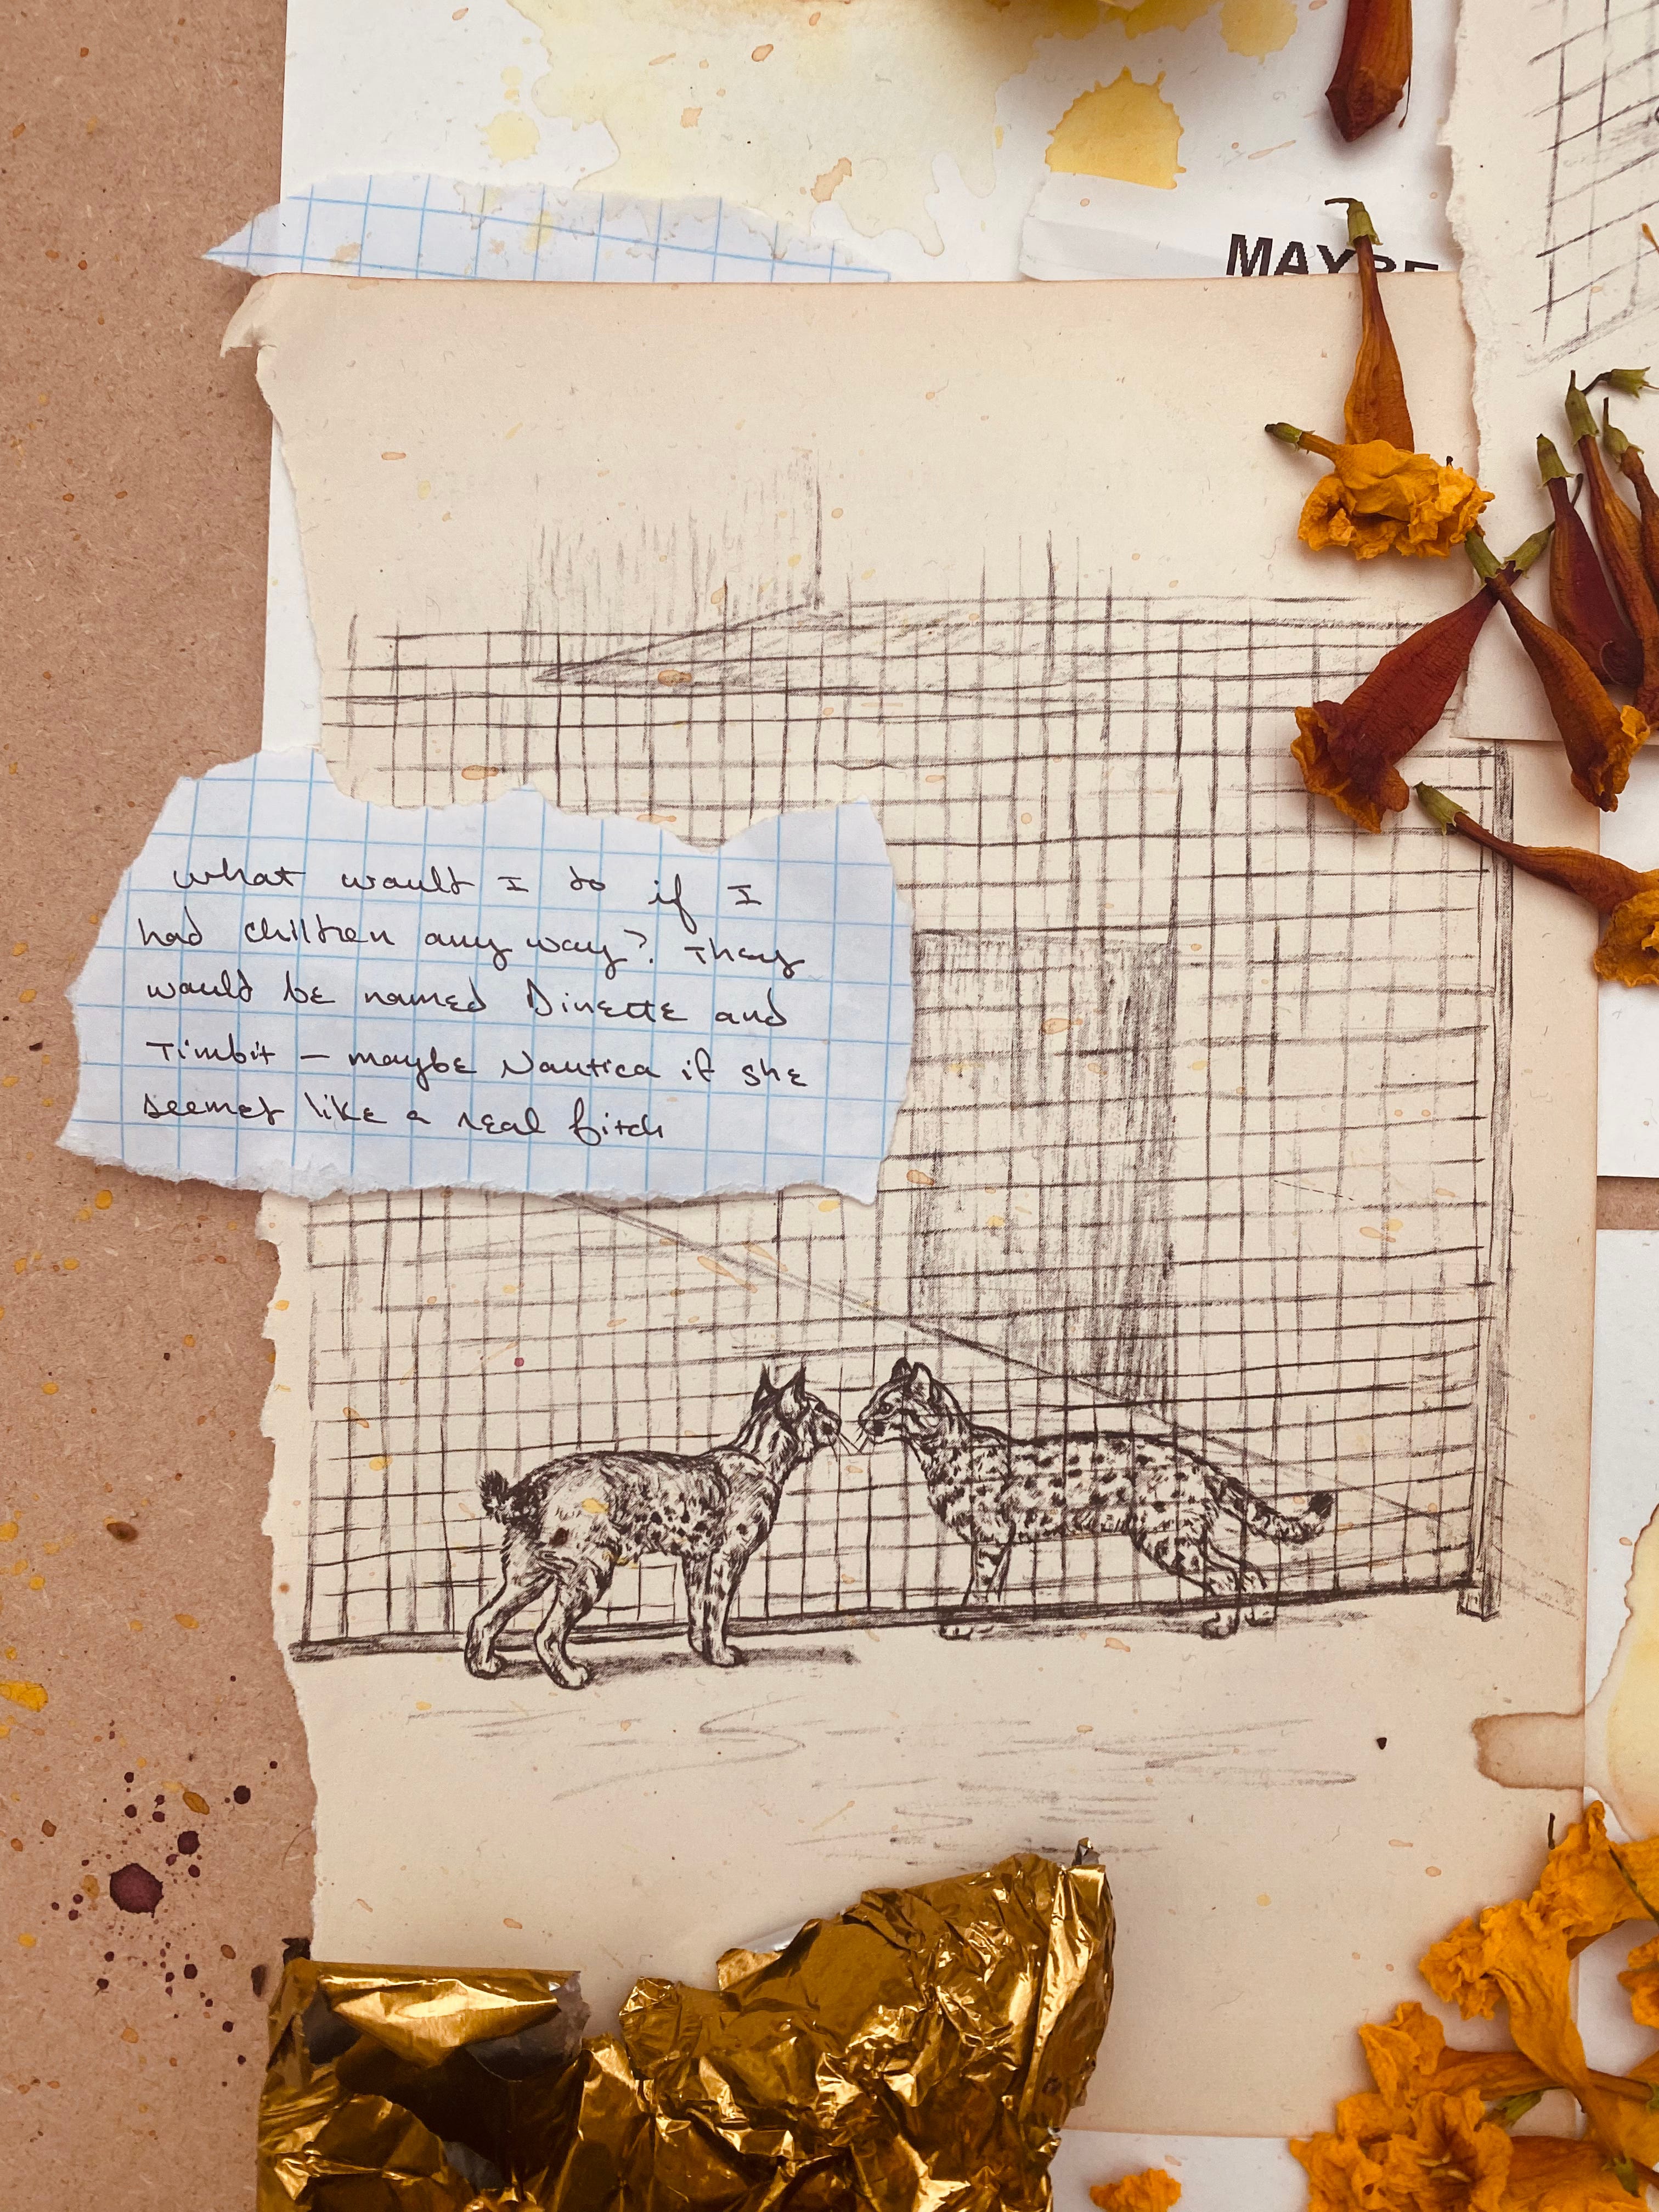 MAYBE
what would I do if I
had children any way? They
would be named Dinette and
Timbit – maybe Nautica if she
seemed like a real bitch